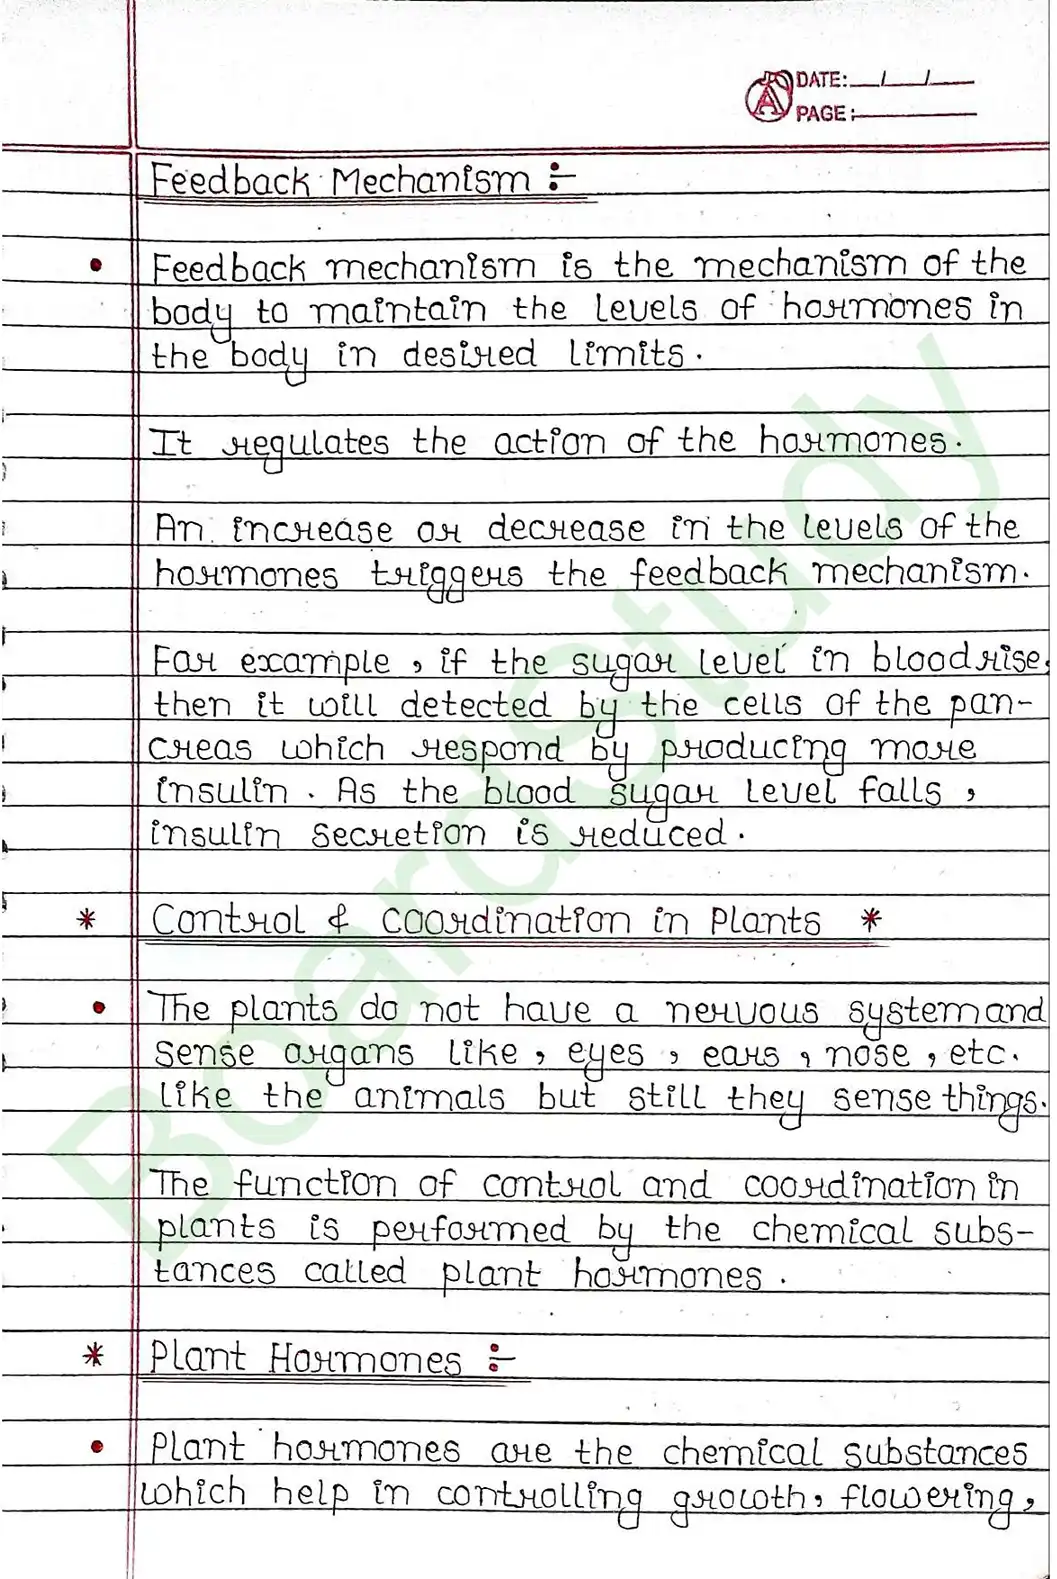 DATE: __/__/__
PAGE: ______
Feedback Mechanism :-
Feedback mechanism is the mechanism of the
body to maintain the levels of hormones in
the body in desired limits.
It regulates the action of the hormones.
An increase or decrease in the levels of the
hormones triggers the feedback mechanism.
For example, if the sugar level in blood rise,
then it will detected by the cells of the pan-
creas which respond by producing more
insulin. As the blood sugar level falls,
insulin secretion is reduced.
* Control & Coordination in Plants *
The plants do not have a nervous system and
sense organs like, eyes, ears, nose, etc.
like the animals but still they sense things.
The function of control and coordination in
plants is performed by the chemical subs-
tances called plant hormones.
* Plant Hormones :-
Plant hormones are the chemical substances
which help in controlling growth, flowering,
BoardStudy